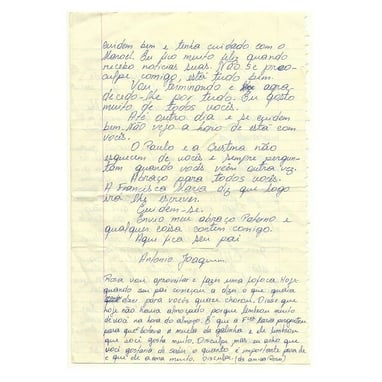 cuidem bem e tenha cuidado com o
Manoel. Eu fico muito feliz quando
recebo notícias suas. Não se preo-
culpe comigo, está tudo bem.
Vou terminando e agra-
decendo-lhe por tudo. Eu gosto
muito de todos vocês.
Até outro dia e se cuidem
bem. Não vejo a hora de está com
vocês.
O Paulo e a Cristina não
esquecem de vocês e sempre pergun-
tam quando vocês vêm outra vez.
Abraço para todos vocês.
A Francisca Maria diz que logo
irá lhe escrever.
Cuidem-se.
Envio meu abraço Paterno e
qualquer coisa contem comigo.
Aqui fica seu pai
Antonio Joaquim
Rosa vou aproveitar e fazer uma fofoca. Hoje
quando seu pai começou a dizer o que queria
dizer para vocês quase chorou. Disse que
hoje não havia almoçado porque lembrou muito
de você na hora do almoço. É que a Fca Maria perguntou
para que botava a moela da galinha e ele lembrou
que você gosta muito. Desculpe mas eu acho que
você gostaria de saber o quanto é importante para ele
e que ele a ama muito.